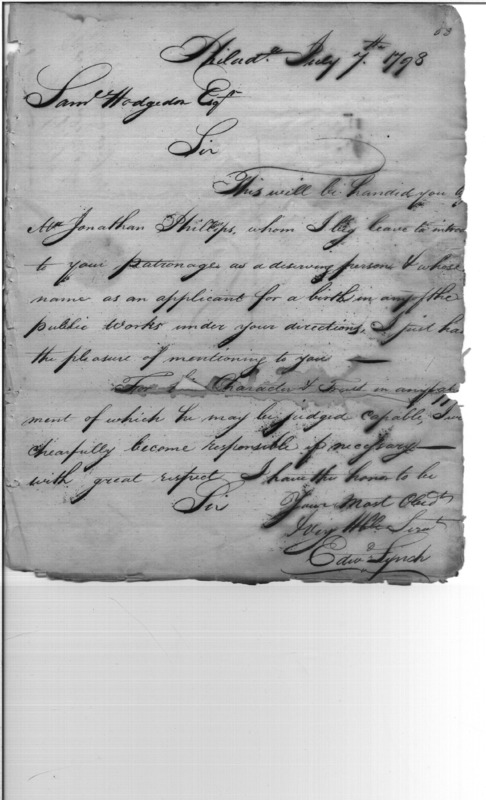 63
Philada July 7th 1793
Saml Hodgedon Esqr
Sir
This will be handed you by
Mr Jonathan Philips, whom I beg leave to intro
to your patronage as a diserving person & whose
name as an applicant for a birth in any of the
public Works under your directions, I just ha
the pleasure of mentioning to you —
For Character & Trust in any
ment of which he may be judged capable, I
chearfully become responsible if necessary —
with great respect I have the honor to be
Sir Your Most Obedt
& Very Hble Servt
Edwd Lynch